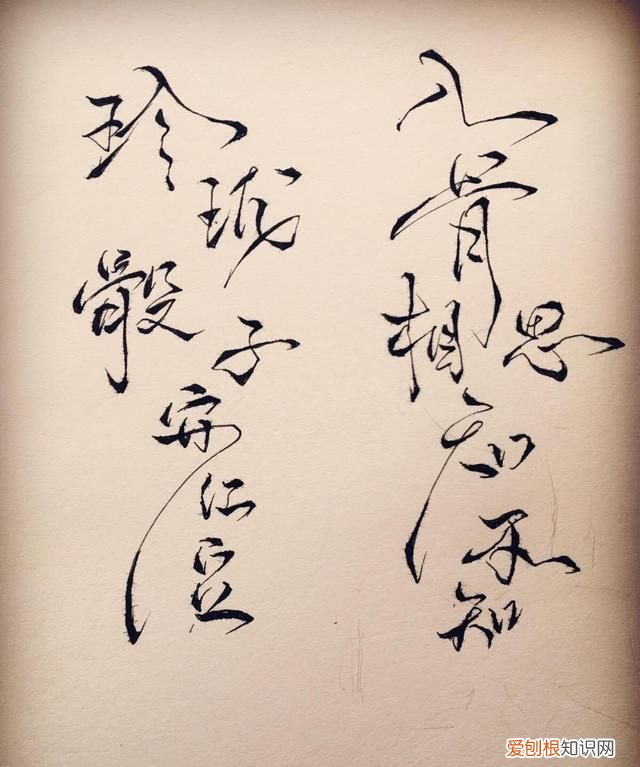 玲珑骰子安红豆
入骨相思知不知
爱刨根知识网